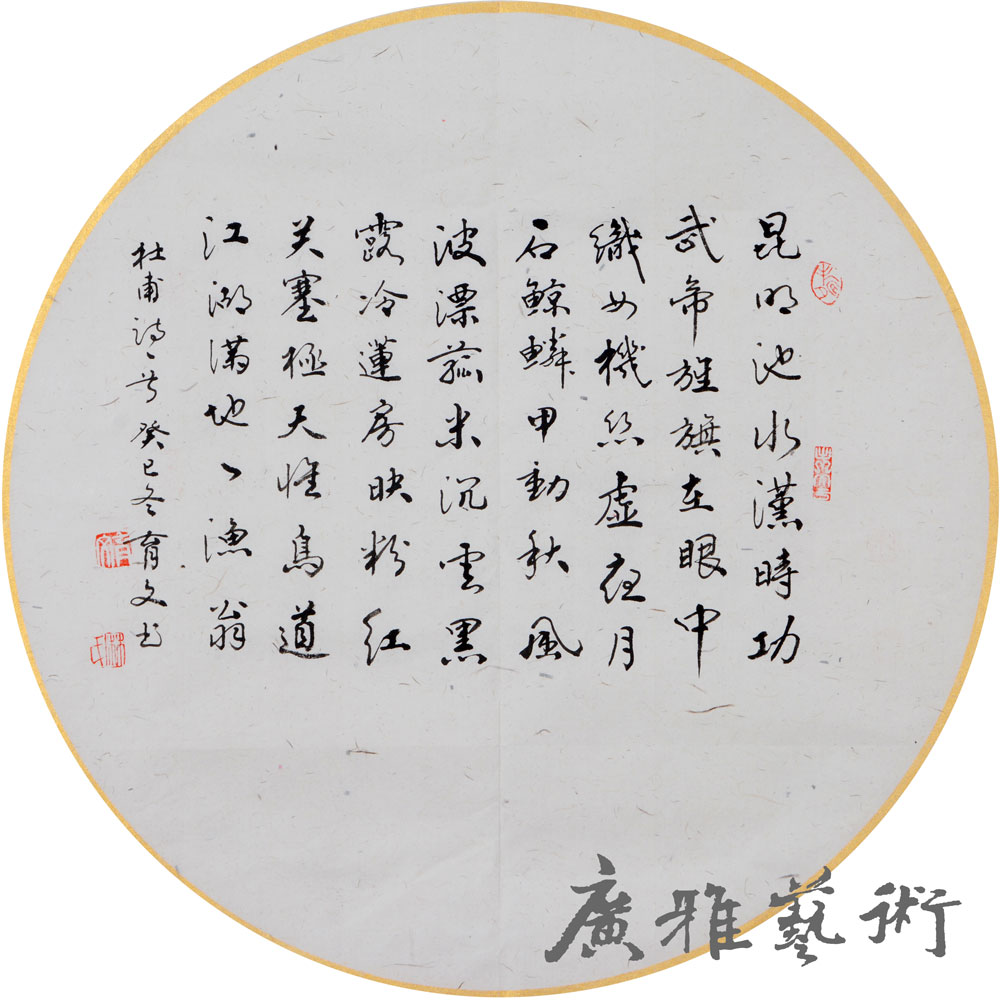 昆明池水漢時功
武帝旌旗在眼中
織女機絲虛夜月
石鯨鱗甲動秋風
波漂菰米沉雲黑
露冷蓮房映粉紅
关塞極天惟鳥道
江湖滿地一漁翁
杜甫詩一首 癸巳冬育文书
育文
林氏
廣雅藝術